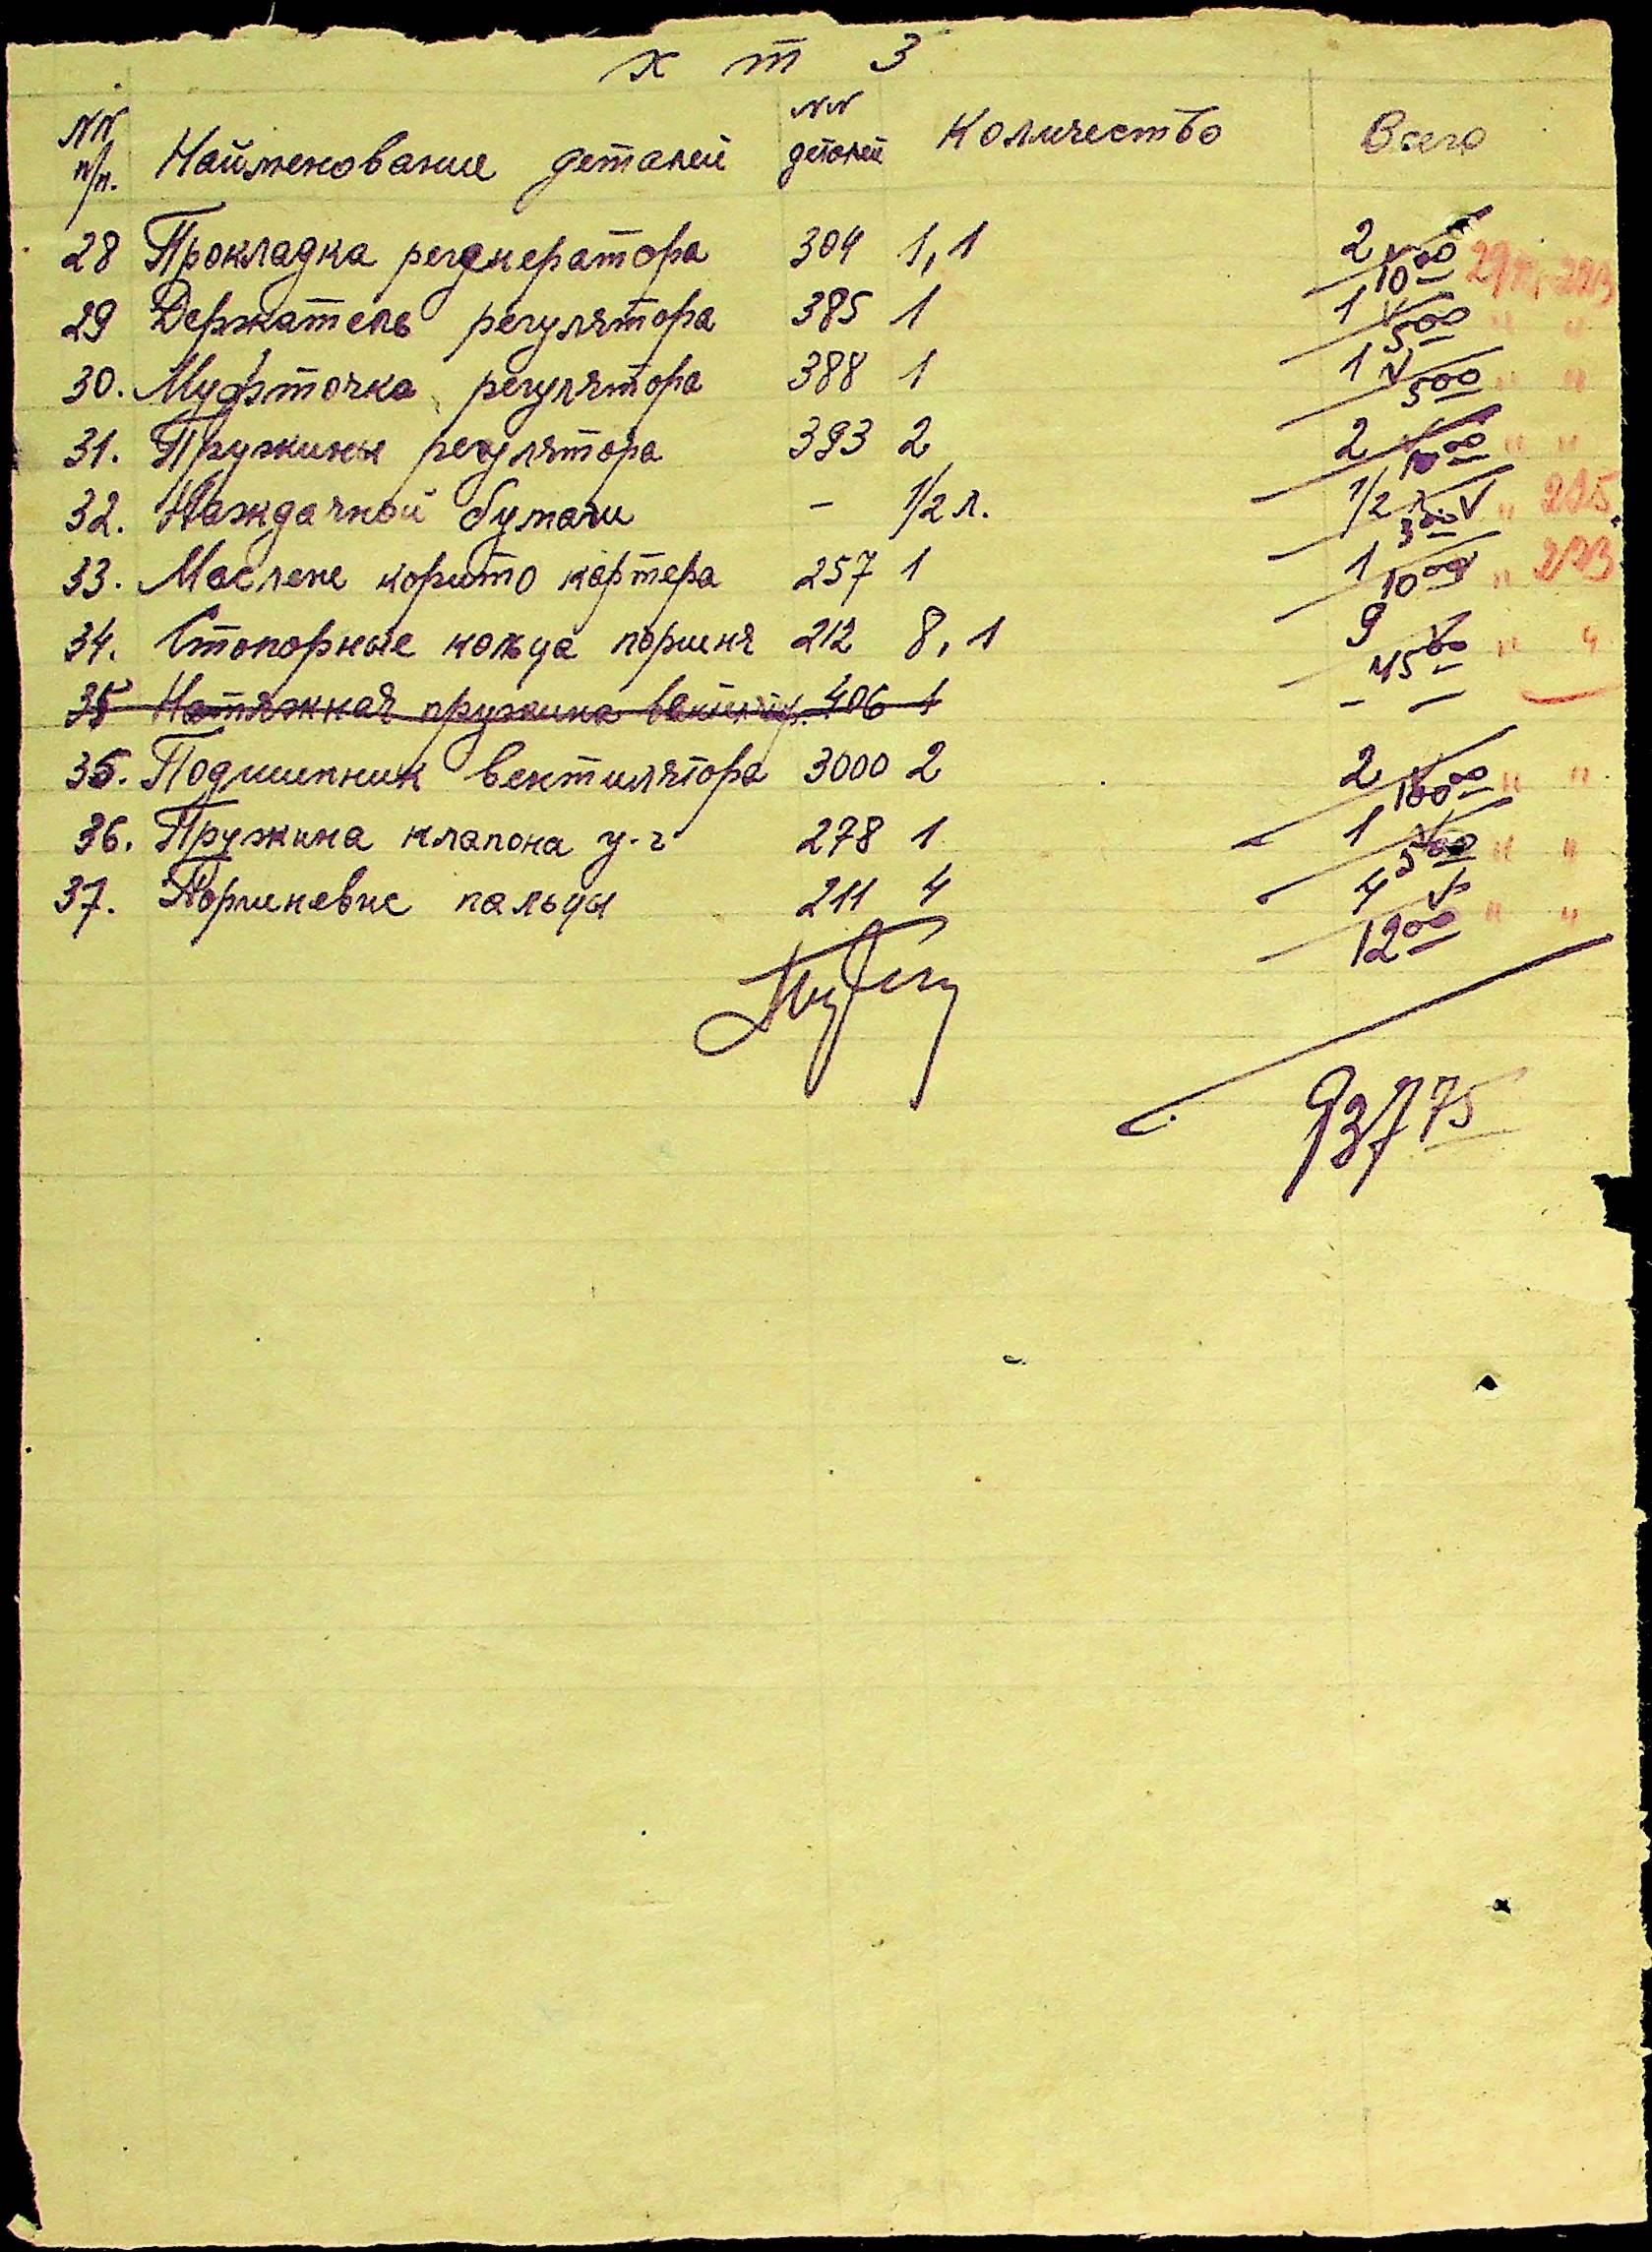 х т з
NN п/п. Найменование деталей NN деталей Количество Всего
28 Прокладка регенератора 304 1,1 2 10 00
29 Держатель регулятора 385 1 1 5 00 " "
30. Муфточка регулятора 388 1 1 5 00 " "
31. Пружины регулятора 393 2 2 10 00 " "
32. Наждачной бумаги – 1/2 л. 1/2 л 3 00 " 215.
33. Маслене корито картера 257 1 1 10 00 " 213
34. Стопорные кольца поршня 212 8,1 9 45 00 " "
35 Натяжная пружина 406 1 – –
35. Подшипник вентилятора 3000 2 2 100 00 " "
36. Пружина клапона у-г 278 1 1 5 00 " "
37. Поршневые пальцы 211 4 4 12 00 " "
937 75